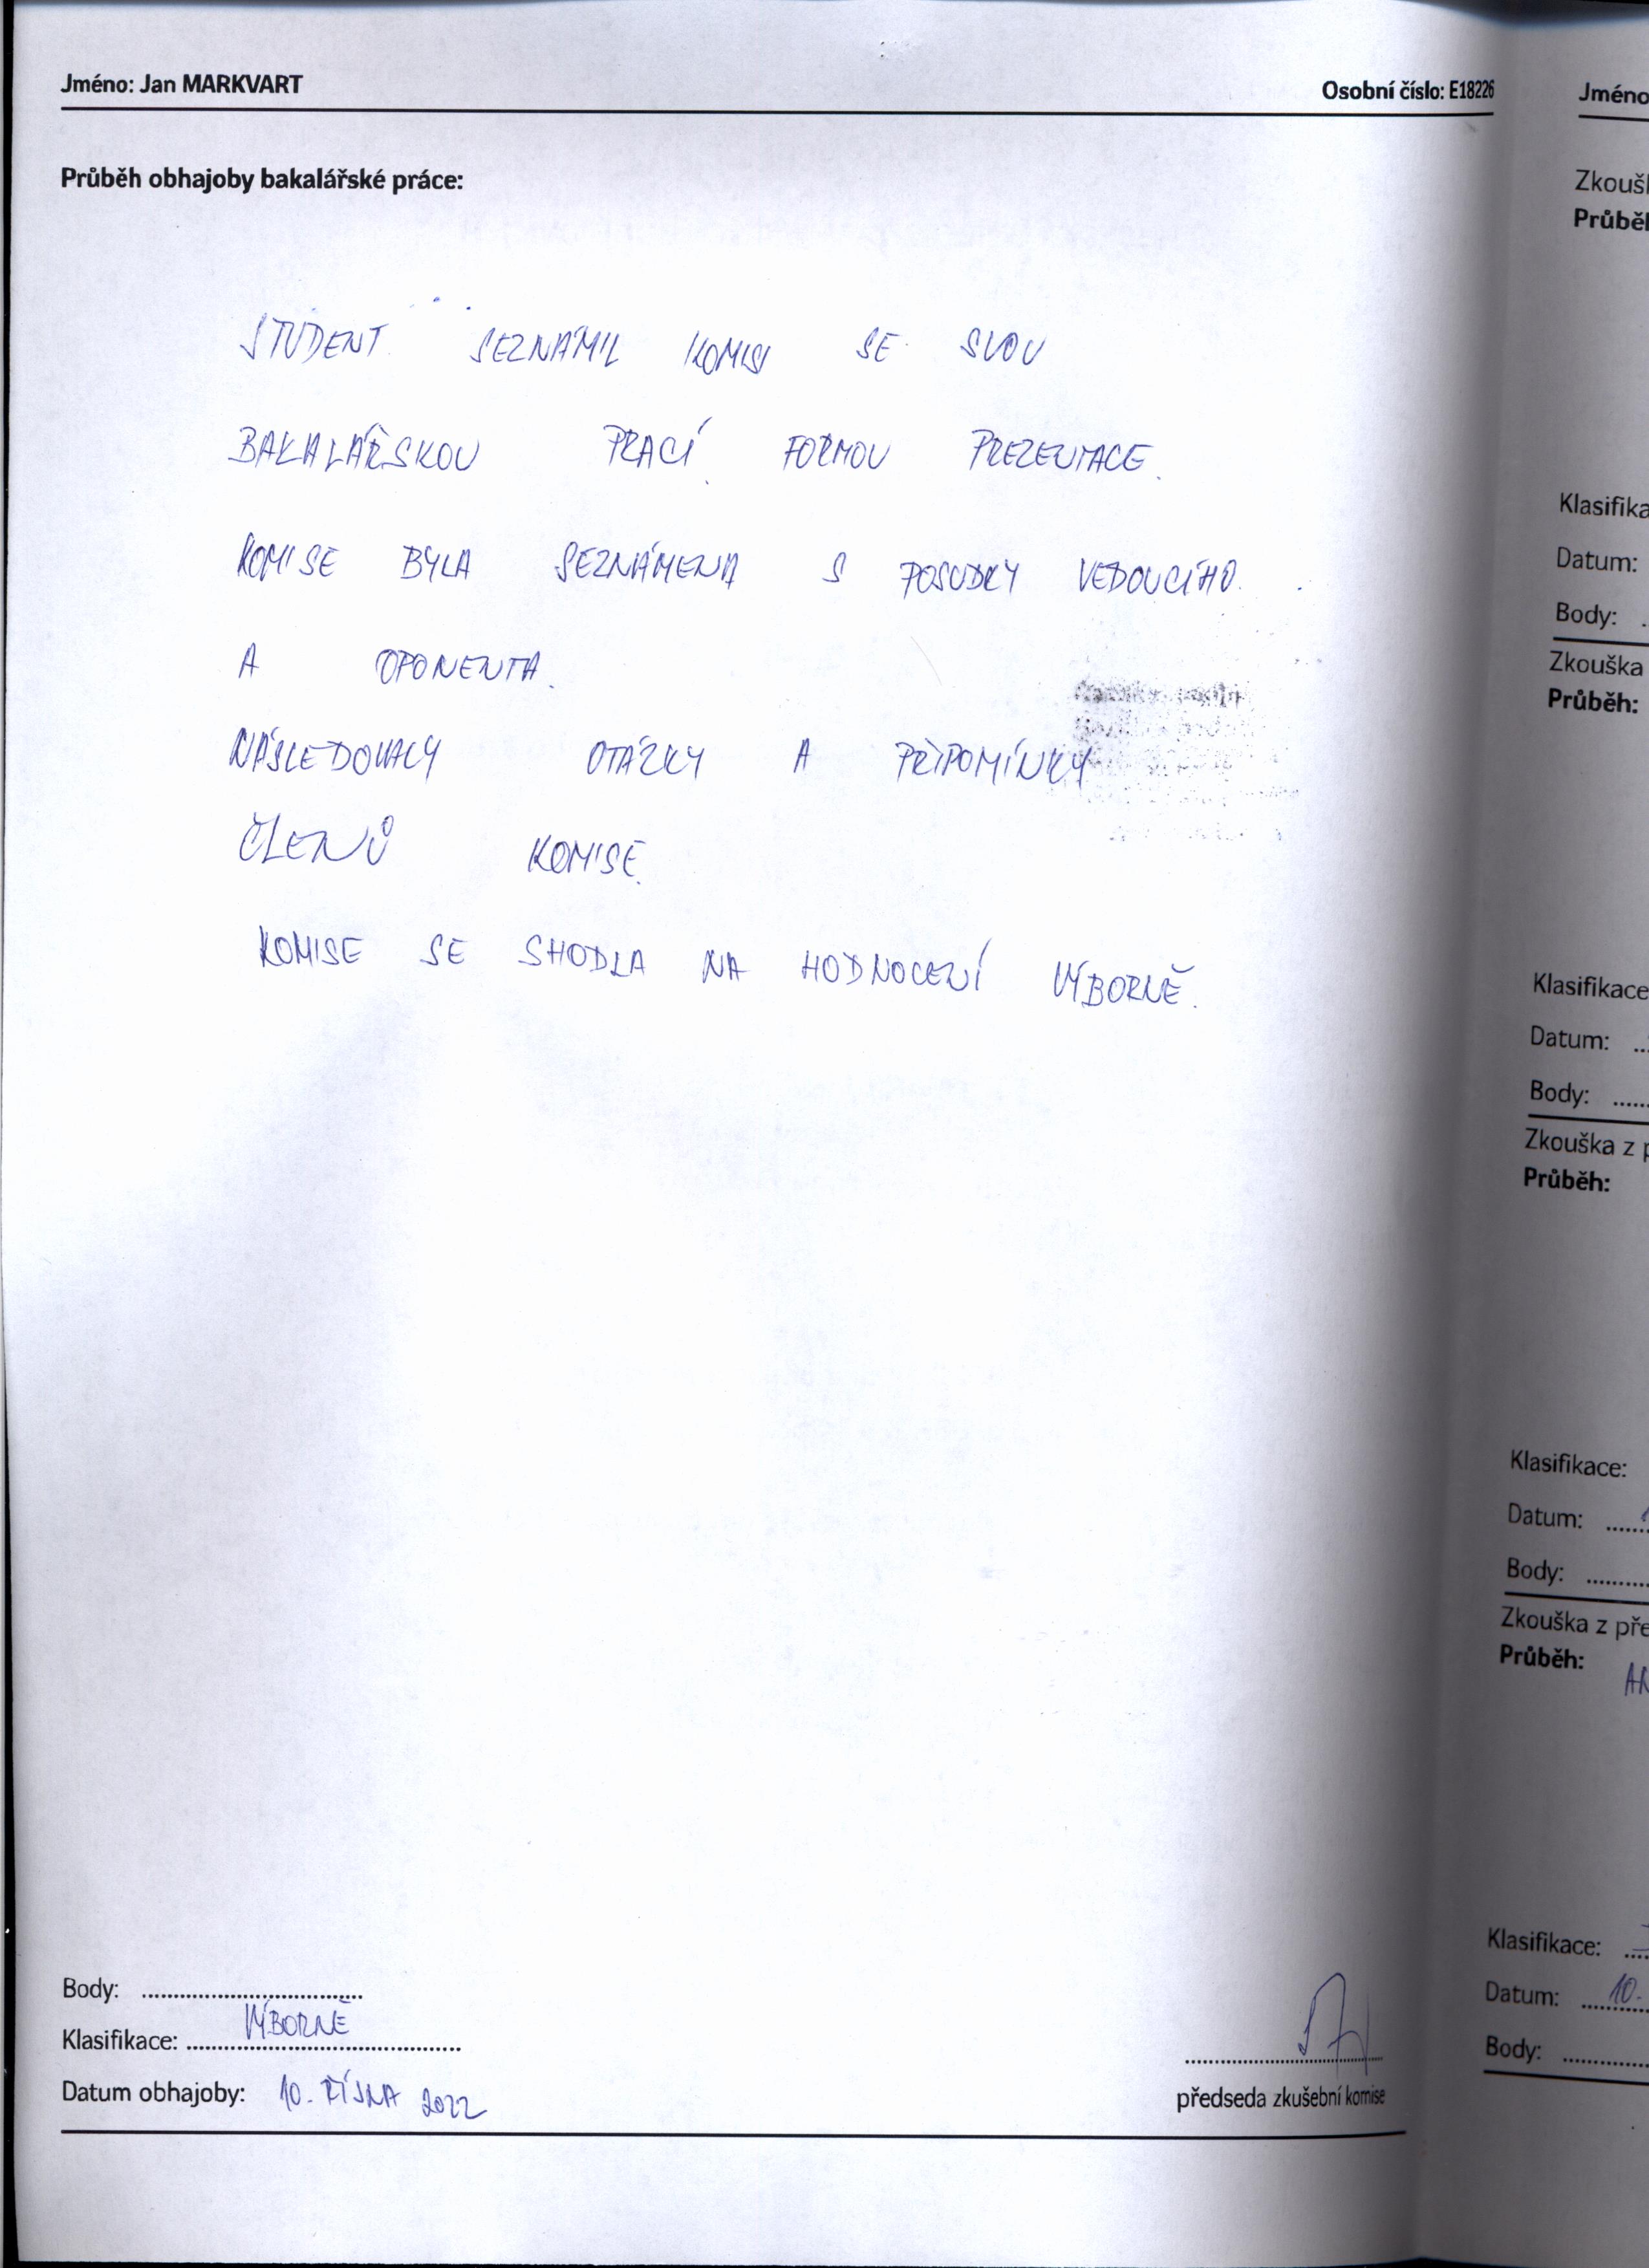 Jméno: Jan MARKVART Osobní číslo: E18226
Průběh obhajoby bakalářské práce:
STUDENT SEZNÁMIL KOMISI SE SVOU
BAKALÁŘSKOU PRACÍ FORMOU PREZENTACE.
KOMISE BYLA SEZNÁMENA S POSUDKY VEDOUCÍHO
A OPONENTA.
NÁSLEDOVALY OTÁZKY A PŘIPOMÍNKY
ČLENŮ KOMISE.
KOMISE SE SHODLA NA HODNOCENÍ VÝBORNĚ.
Body:
Klasifikace: VÝBORNĚ
Datum obhajoby: 10. ŘÍJNA 2022
předseda zkušební komise
Jméno
Průběh
Klasifika
Datum:
Body:
Zkouška
Průběh:
Klasifikace
Datum:
Body:
Zkouška z
Průběh:
Klasifikace:
Datum:
Body:
Zkouška z pře
Průběh:
Klasifikace:
Datum: 10.
Body: